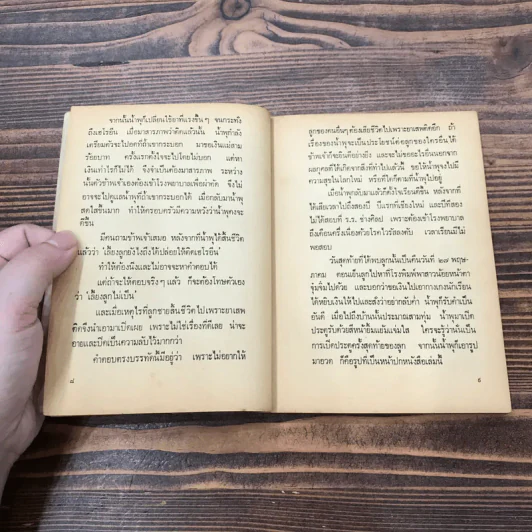 จากนั้นน้ำพุก็เปลี่ยนใช้ยาที่แรงขึ้นๆ จนกระทั่ง
ถึงเฮโรอีน เมื่อมาสารภาพว่าติดแล้วนั้น น้ำพุกำลัง
เตรียมตัวจะไปอดที่ถ้ำเขากระบอก มาขอเงินแม่สาม
ร้อยบาท ครั้งแรกตั้งใจจะไปโดยไม่บอก แต่หา
เงินเท่าไรก็ไม่ได้ จึงจำเป็นต้องมาสารภาพ ระหว่าง
นั้นตัวข้าพเจ้าเองต้องเข้าโรงพยาบาลเพื่อผ่าตัด จึงไม่
อาจจะไปดูแลน้ำพุที่ถ้ำเขากระบอกได้ เมื่อกลับมาน้ำพุ
สดใสขึ้นมาก ทำให้ครอบครัวมีความหวังว่าน้ำพุคงจะ
ดีขึ้น
มีคนถามข้าพเจ้าเสมอ หลังจากที่น้ำพุได้สิ้นชีวิต
แล้วว่า "เลี้ยงลูกยังไงถึงได้ปล่อยให้ติดเฮโรอีน"
ทำให้ต้องนิ่งและไม่อาจจะหาคำตอบได้
แต่ถ้าจะให้ตอบจริงๆ แล้ว ก็จะต้องโทษตัวเอง
ว่า "เลี้ยงลูกไม่เป็น"
และเมื่อเหตุไรที่ลูกชายสิ้นชีวิตไปเพราะยาเสพ
ติดจึงนำเอามาเปิดเผย เพราะไม่ใช่เรื่องที่ดีเลย น่าจะ
อายและปิดเป็นความลับไว้มากกว่า
คำตอบตรงบรรทัดนี้มีอยู่ว่า เพราะไม่อยากให้
๘
ลูกของคนอื่นๆ ต้องเสียชีวิตไปเพราะยาเสพติดอีก ถ้า
เรื่องของน้ำพุจะเป็นประโยชน์ต่อลูกของใครอื่นได้
ข้าพเจ้าก็จะยินดีอย่างยิ่ง และจะไม่ขออะไรอื่นนอกจาก
ผลกุศลที่ให้เกิดจากสิ่งที่ทำไปแล้วนี้ ขอให้น้ำพุจงไม่มี
ความสุขในโลกใหม่ หรือที่ใดก็ตามที่น้ำพุไปอยู่
เมื่อน้ำพุกลับมาแล้วก็ตั้งใจเรียนดีขึ้น หลังจากที่
ได้เสียเวลาไปถึงสองปี ปีแรกหนีเชียงใหม่ และปีที่สอง
ไม่ได้สอบที่ ร.ร. ช่างศิลป เพราะต้องเข้าโรงพยาบาล
ถึงเดือนครึ่งเนื่องด้วยโรคไวรัสลงตับ เวลาเรียนมีไม่
พอสอบ
วันสุดท้ายที่ได้พบลูกนั้นเป็นคืนวันที่ ๒๗ พฤษ-
ภาคม ตอนเย็นลูกไปหาที่โรงพิมพ์พาสาวน้อยหน้าตา
จุ๋มจิ๋มไปด้วย และบอกว่าขอเงินไปเอากางเกงนักเรียน
ได้หยิบเงินให้ไปและสั่งว่าอย่ากลับค่ำ น้ำพุก็รับคำเป็น
อันดี เมื่อไปถึงบ้านนั้นประมาณสามทุ่ม น้ำพุมาเปิด
ประตูรับด้วยสีหน้ายิ้มแย้มแจ่มใส ใครจะรู้ว่านั่นเป็น
การเปิดประตูครั้งสุดท้ายของลูก จากนั้นน้ำพุก็เอารูป
มาอวด ก็คือรูปที่เป็นหน้าปกหนังสือเล่มนี้